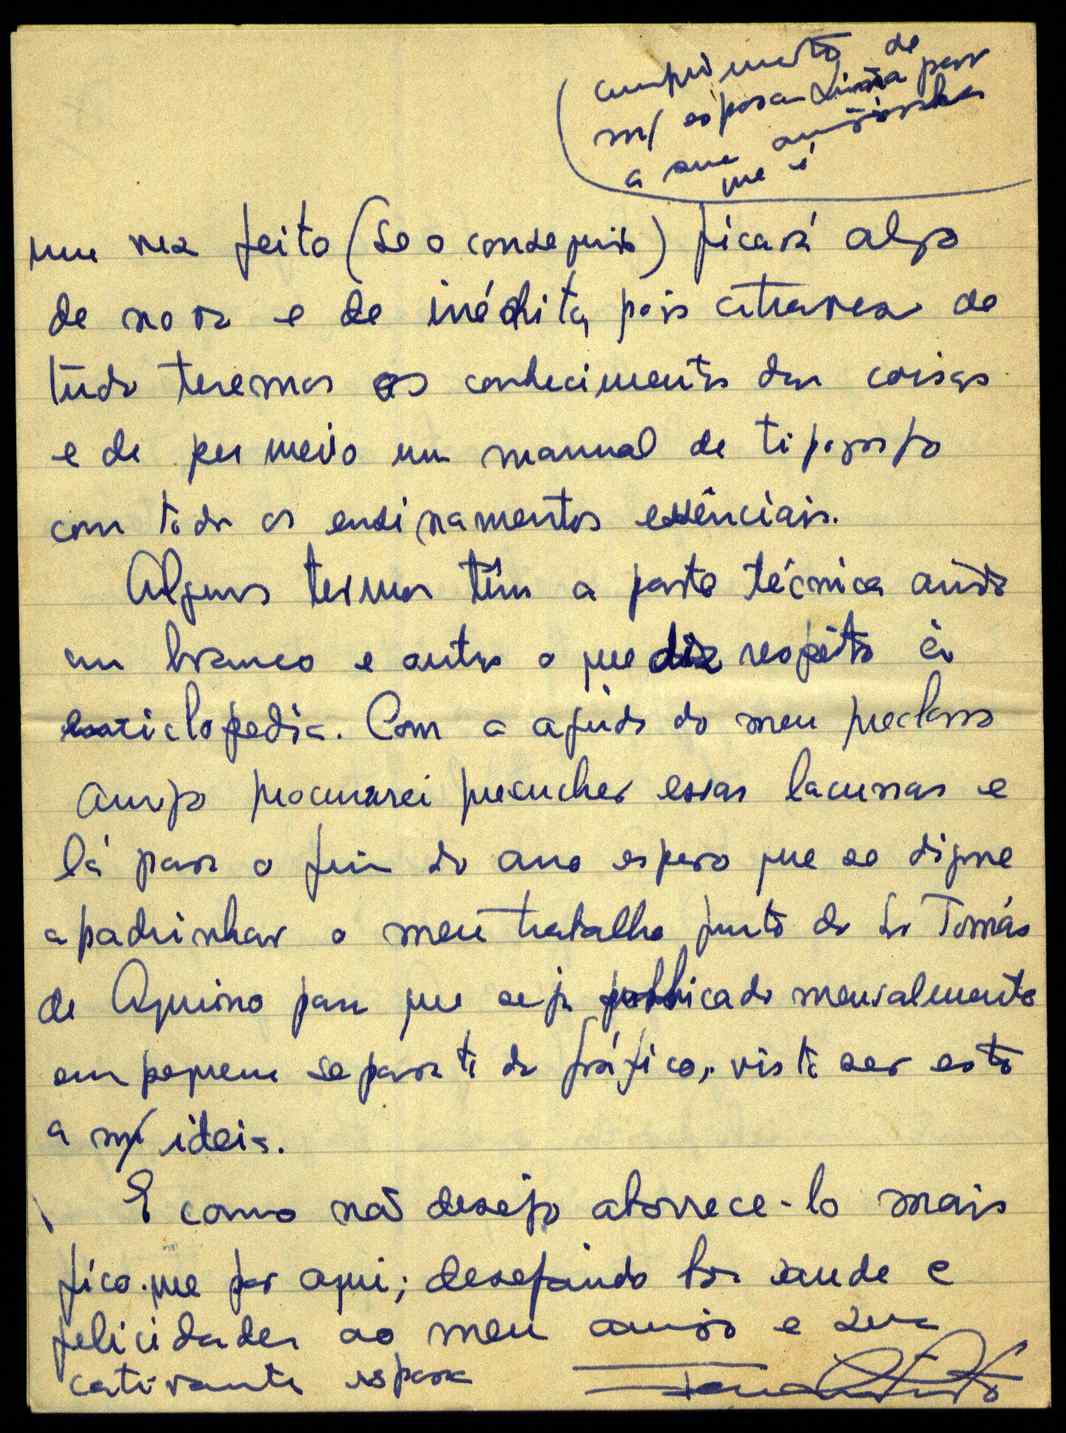 cumprimento de
m/ esposa Luisa para
a sua amiguinha
que é
uma vez feito (se o conseguir) ficará algo
de novo e de inédito, pois atravez de
tudo teremos os conhecimentos das coisas
e de per meio um manual de tipografo
com todos os ensinamentos essênciais.
Alguns termos têm a parte técnica ainda
em branco e outros o que diz respeito à
enciclopedia. Com a ajuda do meu preclaro
amigo procurarei preencher essas lacunas e
lá para o fim do ano espero que se digne
apadrinhar o meu trabalho junto do Sr Tomás
de Aquino para que seja publicado mensalmente
em pequena separata do gráfico, visto ser esta
a m/ ideia.
E como não desejo aborrece-lo mais
fico-me por aqui; desejando boa saude e
felicidades ao meu amigo e sua
cativante esposa